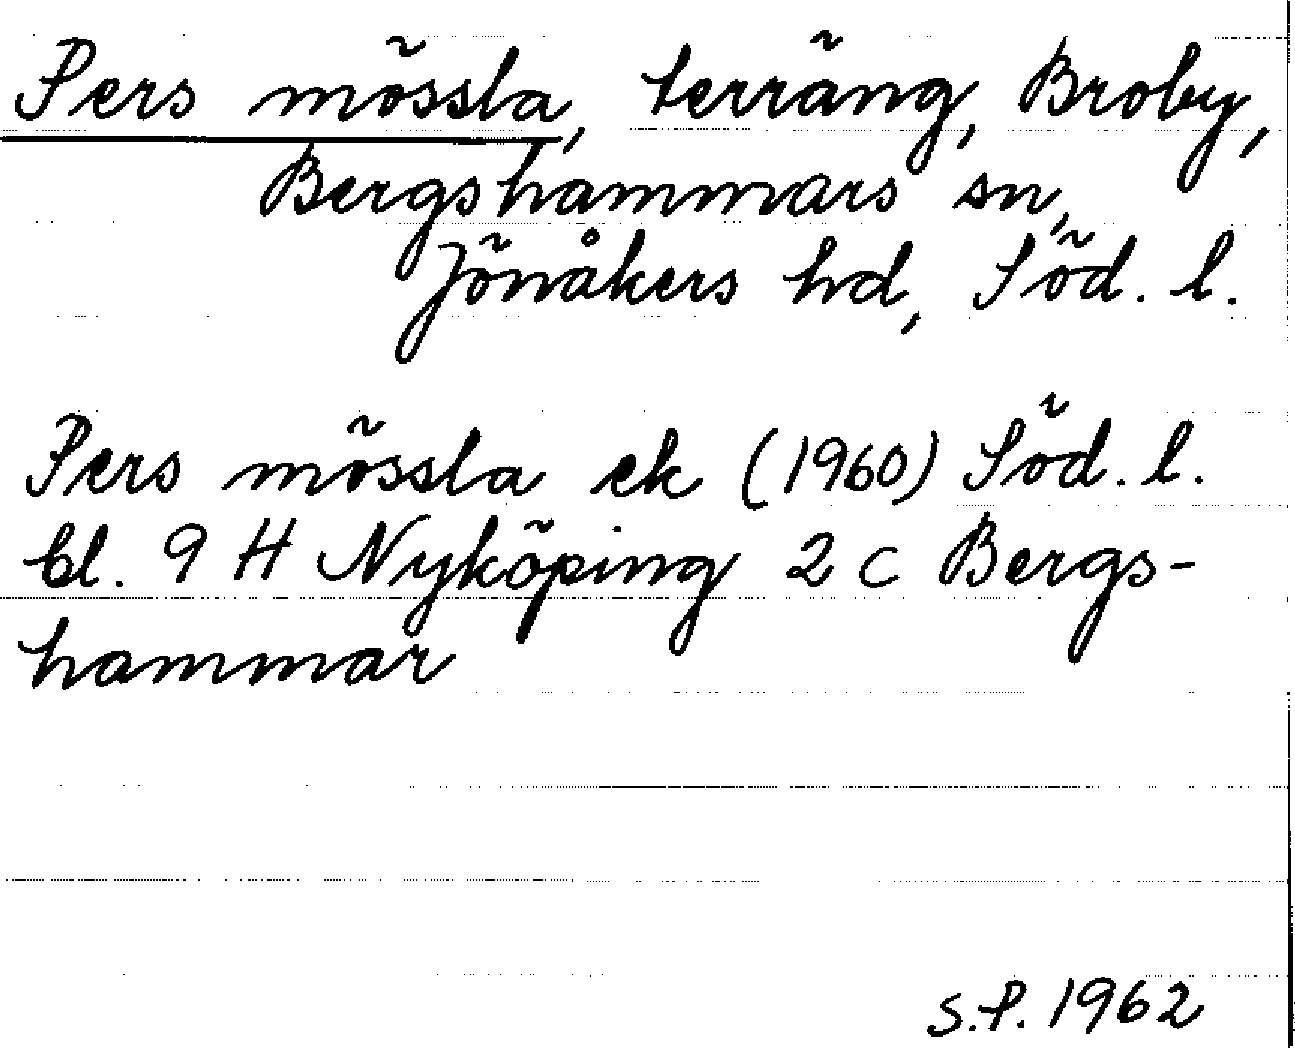 Pers mössla, terräng, Broby,
Bergshammars sn,
Jönåkers hd, Söd. l.
Pers mössla ek (1960) Söd. l.
bl. 9 H Nyköping 2 c Bergs-
hammar
S.P. 1962